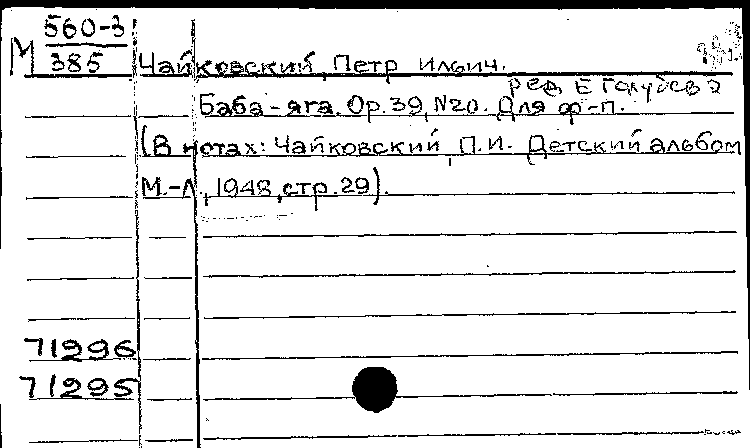 М 560-3
385
Чайковский, Петр Ильич.
ред Е Голубева
Баба-яга. Ор.39, №20. Для ф-п.
(В нотах: Чайковский, П.И. Детский альбом
М.-Л, 1948, стр.29).
71296
71295